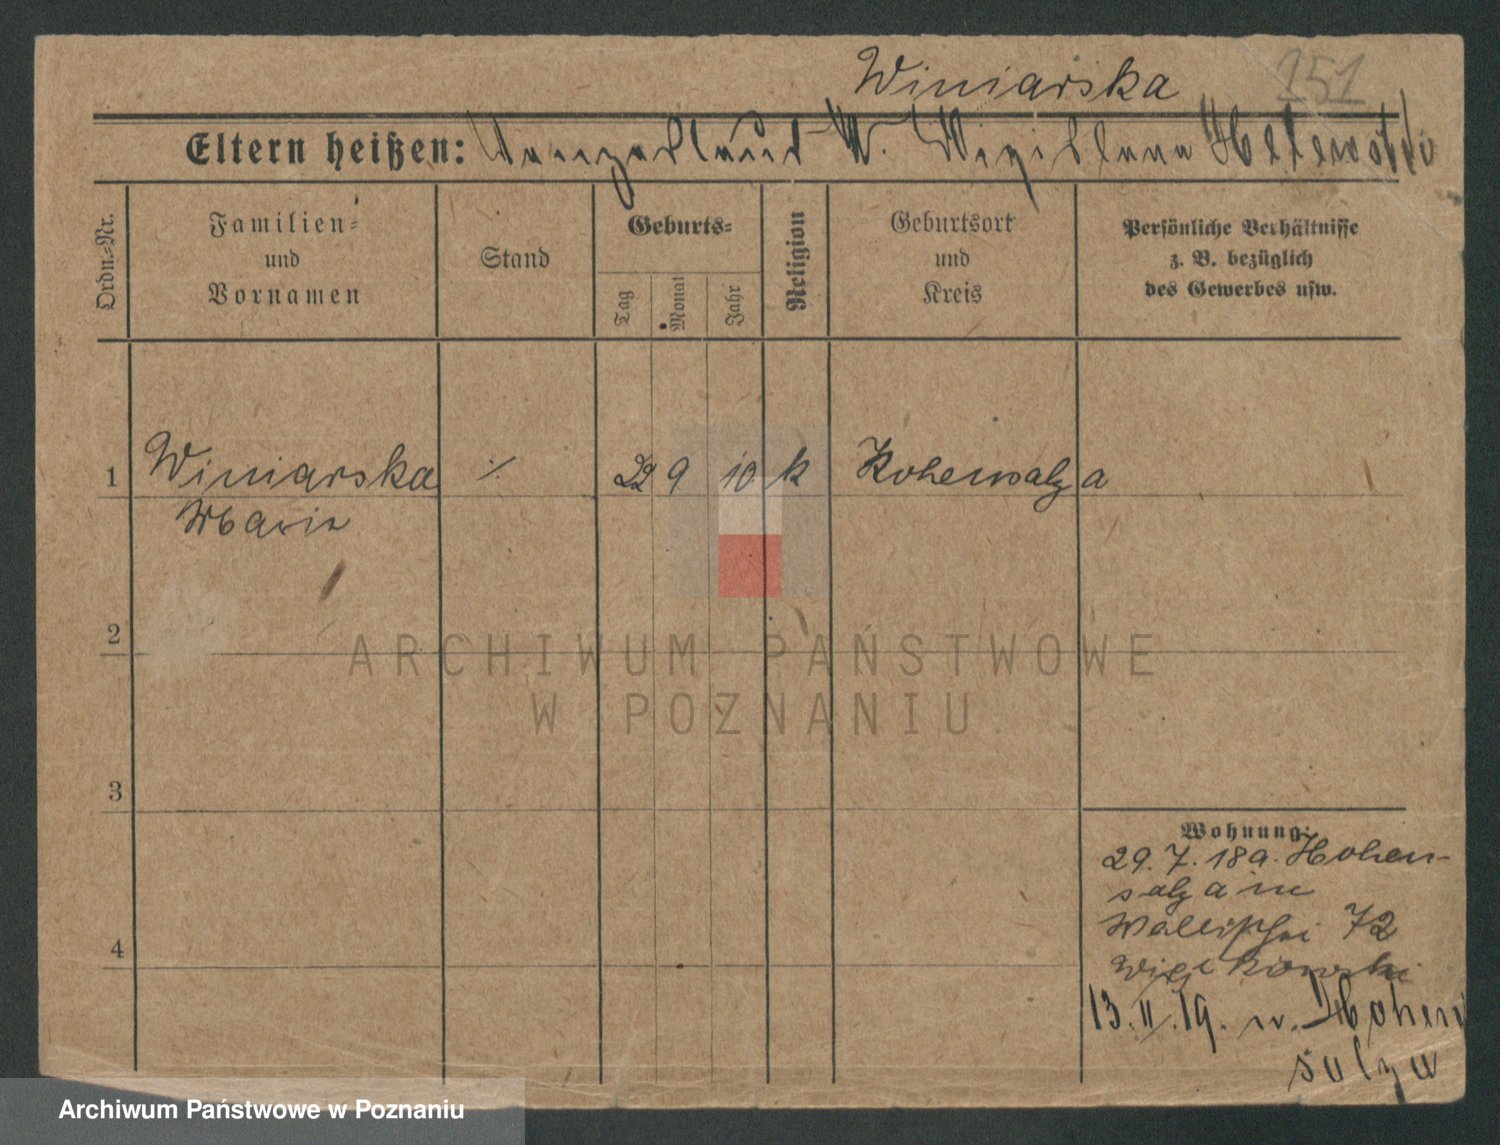 Winiarska 151
Eltern heißen:
Ordn.-Nr.
Familien-
und
Vornamen
Stand
Geburts-
Tag
Monat
Jahr
Religion
Geburtsort
und
Kreis
Persönliche Verhältnisse
z. B. bezüglich
des Gewerbes usw.
1 Winiarska ⁒ 22 9 10 k Hohensalza
Marie
2
3
4
Wohnung:
29. 7. 18 a. Hohen-
salza in
Wallischei 72
13. II. 19. n. Hohen
salza
ARCHIWUM PAŃSTWOWE
W POZNANIU
Archiwum Państwowe w Poznaniu